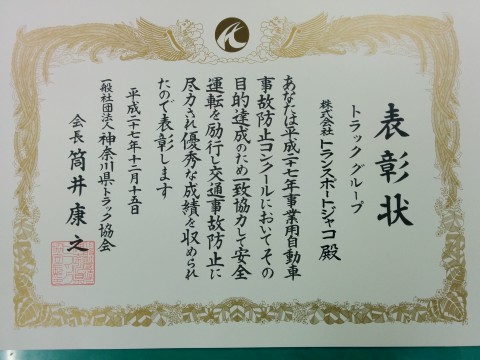 表彰状
トラックグループ
株式会社トランスポートジャコ 殿
あなたは平成二十七年事業用自動車
事故防止コンクールにおいてその
目的達成のため一致協力して安全
運転を励行し交通事故防止に
尽力され優秀な成績を収められ
たので表彰します
平成二十七年十二月十五日
一般社団法人神奈川県トラック協会
会長 筒井康之